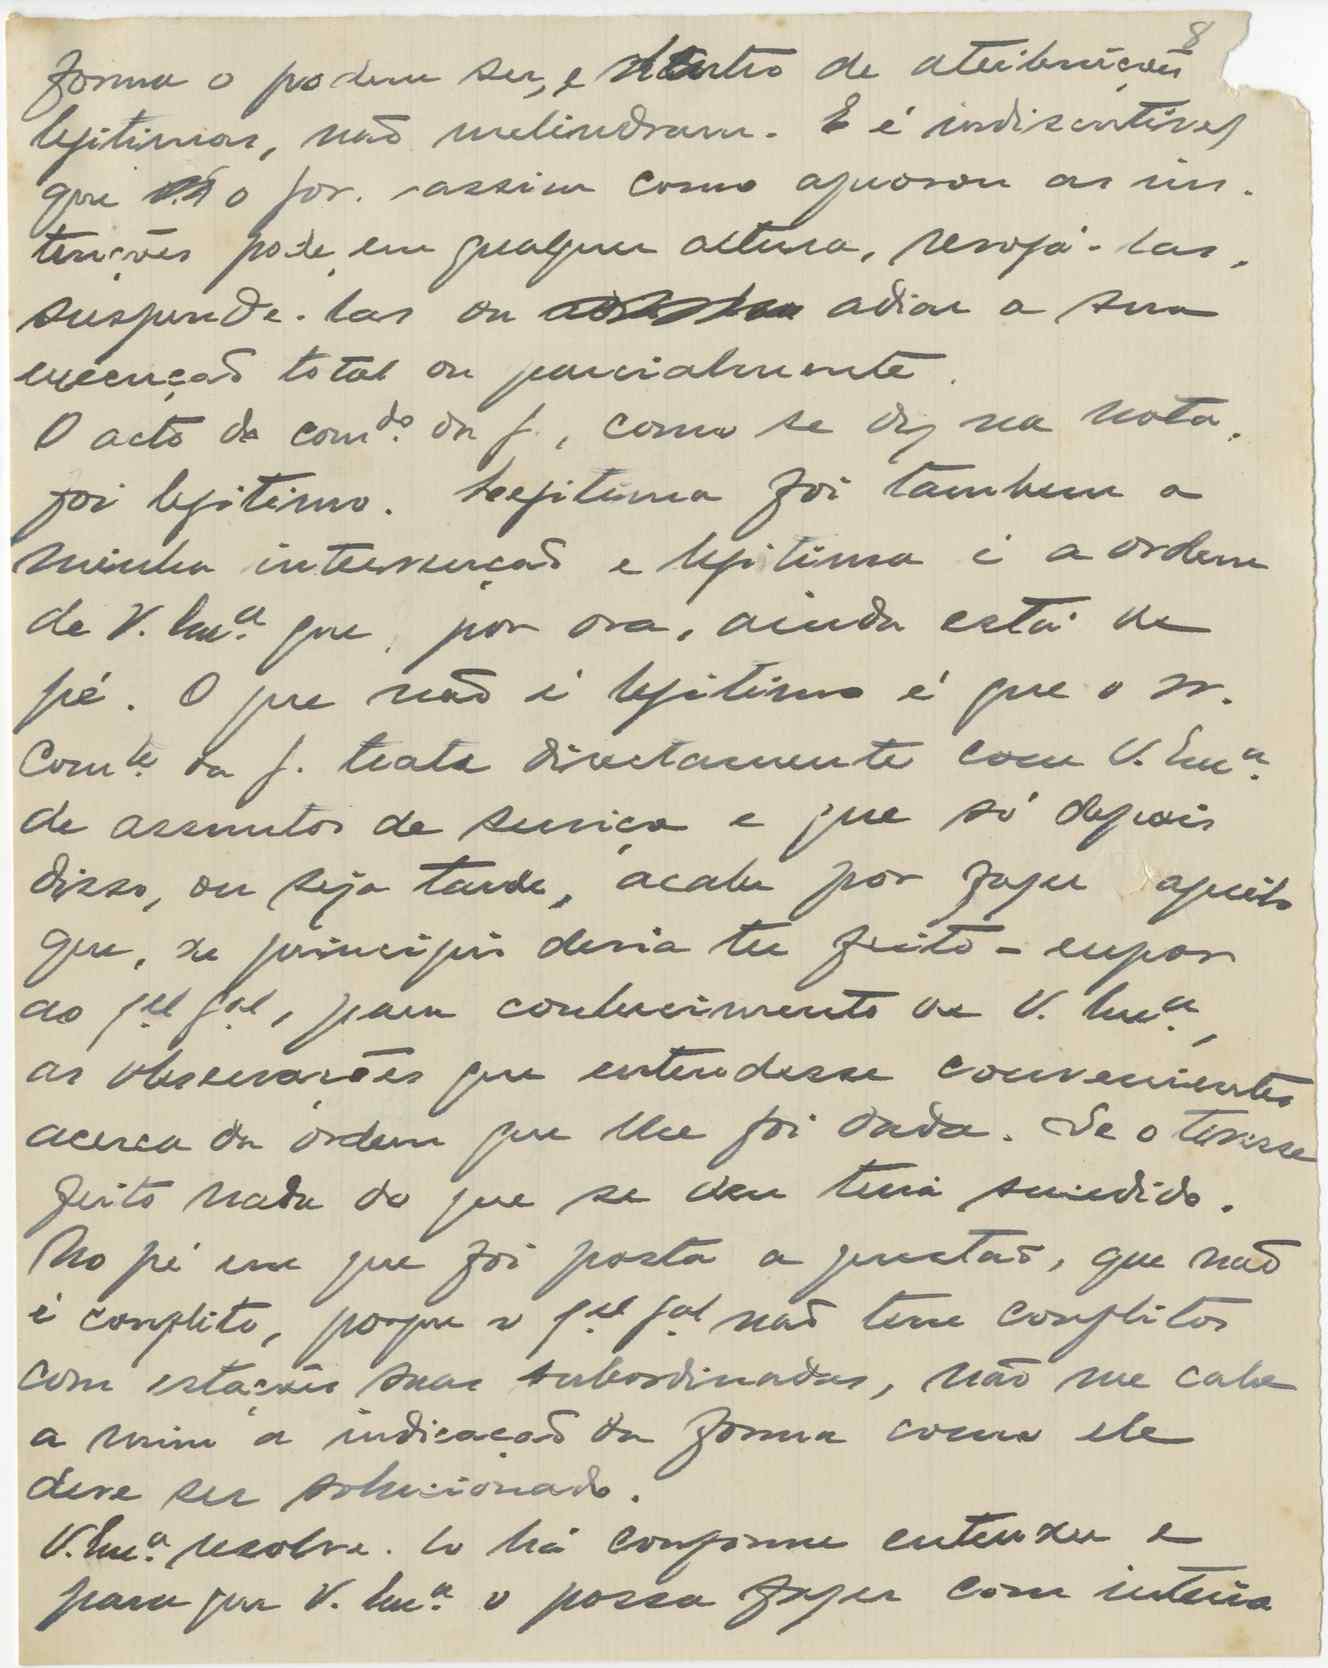 8
forma o podem ser, e dentro de atribuições
legitimas, não melindram. E é indiscutivel
que o gov. assim como aprovou as ins-
truções pode, em qualquer altura, revogá-las,
suspende-las ou adiar a sua
execução total ou parcialmente.
O acto do com.do da f., como se diz na nota,
foi legitimo. Legitima foi tambem a
minha intervenção e legitima é a ordem
de V. Exc.a que, por ora, ainda está de
pé. O que não é legitimo é que o sr.
Com.te da f. trate directamente com V. Exc.a
de assuntos de serviço e que só depois
disso, ou seja tarde, acabe por fazer aquilo
que, de principio devia ter feito - expor
ao q.el g.al, para conhecimento de V. Exc.a,
as observações que entendesse convenientes
acerca da ordem que lhe foi dada. Se o tivesse
feito nada do que se deu teria sucedido.
No pé em que foi posta a questão, que não
é conflito, porque o q.el g.al não tem conflitos
com estações suas subordinadas, não me cabe
a mim a indicação da forma como ele
deve ser solucionado.
V. Exc.a resolve-lo há conforme entender e
para que V. Exc.a o possa fazer com inteira